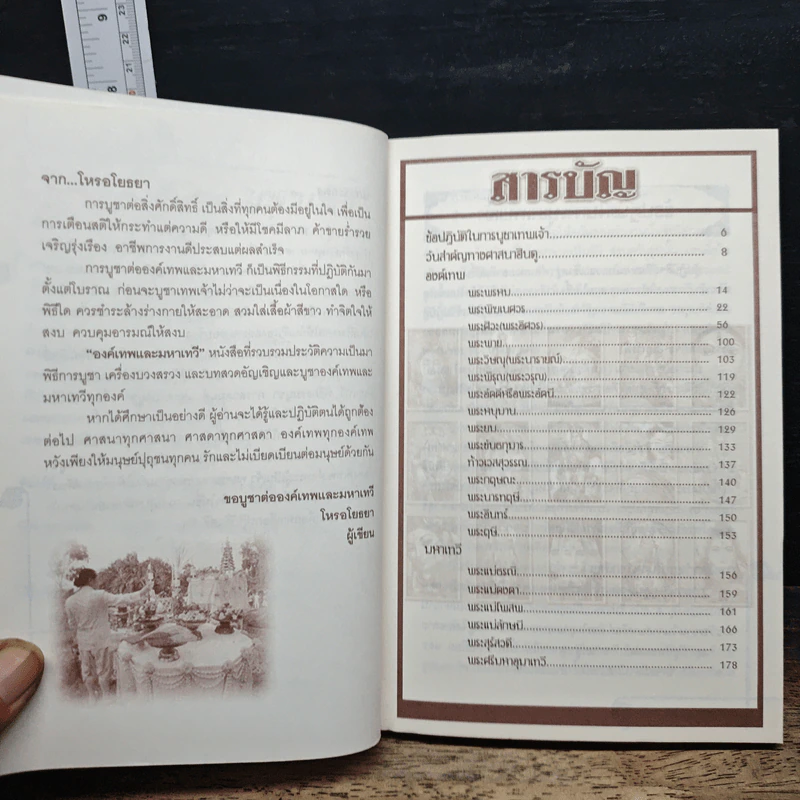 9
8
23
22
21
จาก...โหรอโยธยา
การบูชาต่อสิ่งศักดิ์สิทธิ์ เป็นสิ่งที่ทุกคนต้องมีอยู่ในใจ เพื่อเป็น
การเตือนสติให้กระทำแต่ความดี หรือให้มีโชคมีลาภ ค้าขายร่ำรวย
เจริญรุ่งเรือง อาชีพการงานดีประสบแต่ผลสำเร็จ
การบูชาต่อองค์เทพและมหาเทวี ก็เป็นพิธีกรรมที่ปฏิบัติกันมา
ตั้งแต่โบราณ ก่อนจะบูชาเทพเจ้าไม่ว่าจะเป็นเนื่องในโอกาสใด หรือ
พิธีใด ควรชำระล้างร่างกายให้สะอาด สวมใส่เสื้อผ้าสีขาว ทำจิตใจให้
สงบ ควบคุมอารมณ์ให้สงบ
"องค์เทพและมหาเทวี" หนังสือที่รวบรวมประวัติความเป็นมา
พิธีการบูชา เครื่องบวงสรวง และบทสวดอัญเชิญและบูชาองค์เทพและ
มหาเทวีทุกองค์
หากได้ศึกษาเป็นอย่างดี ผู้อ่านจะได้รู้และปฏิบัติตนได้ถูกต้อง
ต่อไป ศาสนาทุกศาสนา ศาสดาทุกศาสดา องค์เทพทุกองค์เทพ
หวังเพียงให้มนุษย์ปุถุชนทุกคน รักและไม่เบียดเบียนต่อมนุษย์ด้วยกัน
ขอบูชาต่อองค์เทพและมหาเทวี
โหรอโยธยา
ผู้เขียน
สารบัญ
ข้อปฏิบัติในการบูชาเทพเจ้า 6
วันสำคัญทางศาสนาฮินดู 8
องค์เทพ
พระพรหม 14
พระพิฆเนศวร 22
พระศิวะ(พระอิศวร) 56
พระพาย 100
พระวิษณุ(พระนารายณ์) 103
พระพิรุณ(พระวรุณ) 119
พระอัคคีหรือพระอัคนี 122
พระหนุมาน 126
พระยม 129
พระขันธกุมาร 133
ท้าวเวสสุวรรณ 137
พระกฤษณะ 140
พระนาราทฤษี 147
พระอินทร์ 150
พระฤษี 153
มหาเทวี
พระแม่ธรณี 156
พระแม่คงคา 159
พระแม่โพสพ 161
พระแม่ลักษมี 166
พระสุรัสวดี 173
พระศรีมหาอุมาเทวี 178